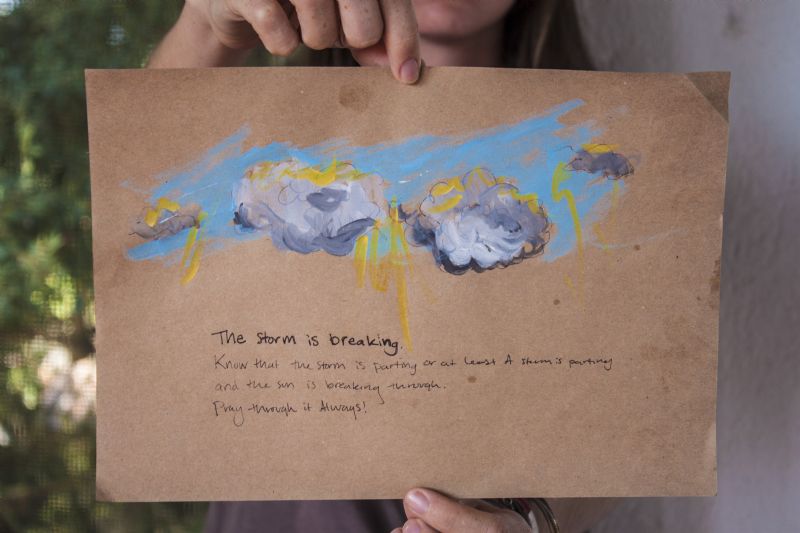 The storm is breaking.
Know that the storm is parting or at least A storm is parting
and the sun is breaking through.
Pray through it Always!